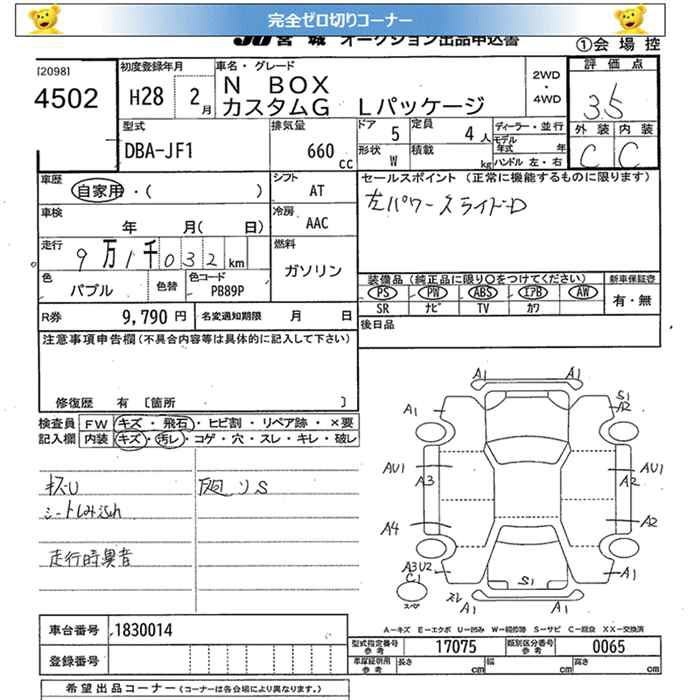 完全ゼロ切りコーナー
JU 宮城 オークション出品申込書
①会場控
[2098]
4502
初度登録年月
H28 2月
車名・グレード
N BOX
カスタムG Lパッケージ
2WD
・
4WD
評価点
3.5
外装 内装
C C
型式
DBA-JF1
排気量
660 cc
ドア 5
定員 4人
形状 W
積載 kg
ディーラー・並行
モデル年式 年
ハンドル 左・右
車歴
自家用・( )
車検
年 月( 日)
走行
9万1千032km
シフト
AT
冷房
AAC
燃料
ガソリン
色
パブル
色替
色コード
PB89P
R券 9,790円
名変通知期限 月 日
セールスポイント (正常に機能するものに限ります)
左パワースライドD
装備品(純正品に限り○をつけてください)
新車保証書
PS PW ABS エアB AW
SR ナビ TV カワ
有・無
後日品
注意事項申告欄(不具合内容等は具体的に記入して下さい)
修復歴 有 〔箇所 〕
検査員記入欄
FW キズ・飛石・ヒビ割・リペア跡・×要
内装 キズ・汚レ・コゲ・穴・スレ・キレ・破レ
キズU
シートしみ汚れ
走行時異音
下廻りS
A1
A1
A1
S1
A2
AU1
A3
AU1
A2
A4
A2
A3U2
C1
スペア
スレ
A1
S1
A1
A1
A-キズ E-エクボ U-凹み W-補修跡 S-サビ C-腐食 XX-交換済
車台番号 1830014
登録番号
型式指定番号 参考 17075
類別区分番号 参考 0065
車庫証明用 参考
長さ cm
幅 cm
高さ cm
希望出品コーナー (コーナーは各会場により異なります。)